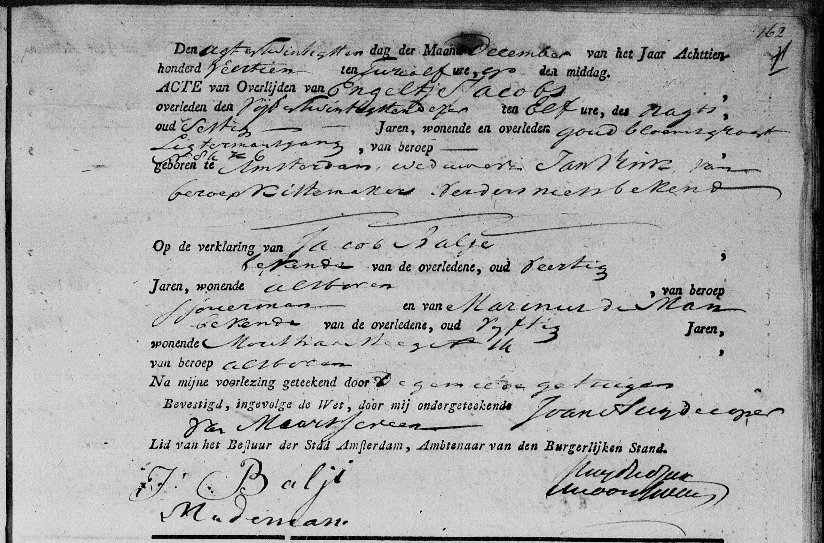 162
Den agt en twintigsten dag der Maand December van het Jaar Achttien
honderd Veertien ten Twaalf ure, op den middag.
ACTE van Overlijden van Engeltje Jacobs,
overleden den vijf en twintigsten dezer ten Elf ure, des nagts,
oud Sestig Jaren, wonende en overleden goudbloemsgragt
, van beroep
geboren te Amsterdam, weduwe van Jan Vink, van
beroep Kistemaker verders niets bekend
Op de verklaring van Jacob Balje,
bekende van de overledene, oud veertig
Jaren, wonende als boven, van beroep
Sjouerman en van Marinus de Man
bekende van de overledene, oud vyftig Jaren,
wonende
van beroep als boven
Na mijne voorlezing geteekend door de gemelde getuigen
Bevestigd, ingevolge de Wet, door mij ondergeteekende Joan Huydecoper
van Maarsseveen
Lid van het Bestuur der Stad Amsterdam, Ambtenaar van den Burgerlijken Stand.
J: Balje Huydecoper
M. de man. van Maarsseveen